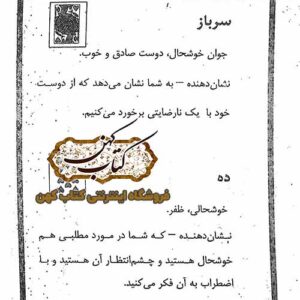 سرباز
جوان خوشحال، دوست صادق و خوب.
نشان‌دهنده — به شما نشان می‌دهد که از دوست
خود با یک نارضایتی برخورد می‌کنیم.
کتاب کهن
فروشگاه اینترنتی کتاب کهن
ده
خوشحالی، ظفر.
نشان‌دهنده — که شما در مورد مطلبی هم
خوشحال هستید و چشم‌انتظار آن هستید و با
اضطراب به آن فکر می‌کنید.